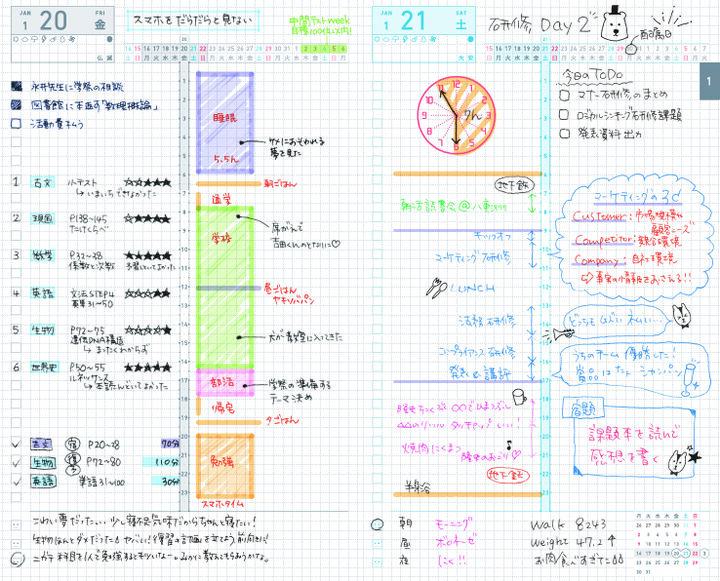 1 20 金
JAN
FRI
スマホをだらだらと見ない
中間テストweek
仏滅
14 15 16 17 18 19 20 21 22 23 24 25 26 27 28 29 30 31 1 2 3 4 5 6
永井先生に学祭の相談
図書館に本返す「数理概論」
活動費もらう
睡眠
5.5h
ケメにおそわれる
夢を見た
朝ごはん
通学
1 古文 小テスト ☆☆★★★
→いまいちできなかった
2 現国 P138~145
たけくらべ
3 数学 P32~38
係数と次数 予習しといてよかった
4 英語 文法STEP4
単単31~50
5 生物 P72~75
遺伝DNA構造
→まったくわからず
6 世界史 P50~55
ルネッサンス
→本読んどいてよかった
学校
席がえで
吉田くんのとなりに♡
昼ごはん
ヤキソバパン
犬が教室に入ってきた
部活
学祭の準備する
テーマ決め
帰宅
夕ごはん
✓ 古文 宿 P20~28 70分
✓ 生物 復習 P72~80 110分
✓ 英語 単語31~100 30分
勉強
スマホタイム
こわい夢だった… 少し寝不足気味だからちゃんと寝たい!
生物ほんとダメだった ヤバい! 復習の計画を立てよう 前向きに!
ニガテ科目を1人で勉強するとキツいなー。みかに教えてもらおうかな。
1 21 土
JAN
SAT
大安
研修 Day 2
配属日
7h
今日のToDo
マナー研修のまとめ
ロジカルシンキング研修課題
発表資料出力
地下鉄
朝の読書会@八重洲
キックオフ
マーケティング研修
LUNCH
法務研修
コンプライアンス研修
発表&講評
マーケティングの3C
Customer: 市場規模や
顧客ニーズ
Competitor: 競合環境
Company: 自社環境
事実の情報をおさえる!!
どっちも はんい ネムい….
うちのチーム優勝した!
賞品はなんと シャンパン
宿題
課題本を読んで
感想を書く
焼肉にくまつ
隆史のおごり♡
地下鉄
半身浴
朝 モーニング
昼 ボロネーゼ
夜 にく!!
Walk 8243
Weight 47.2↑
お肉食べすぎた
1